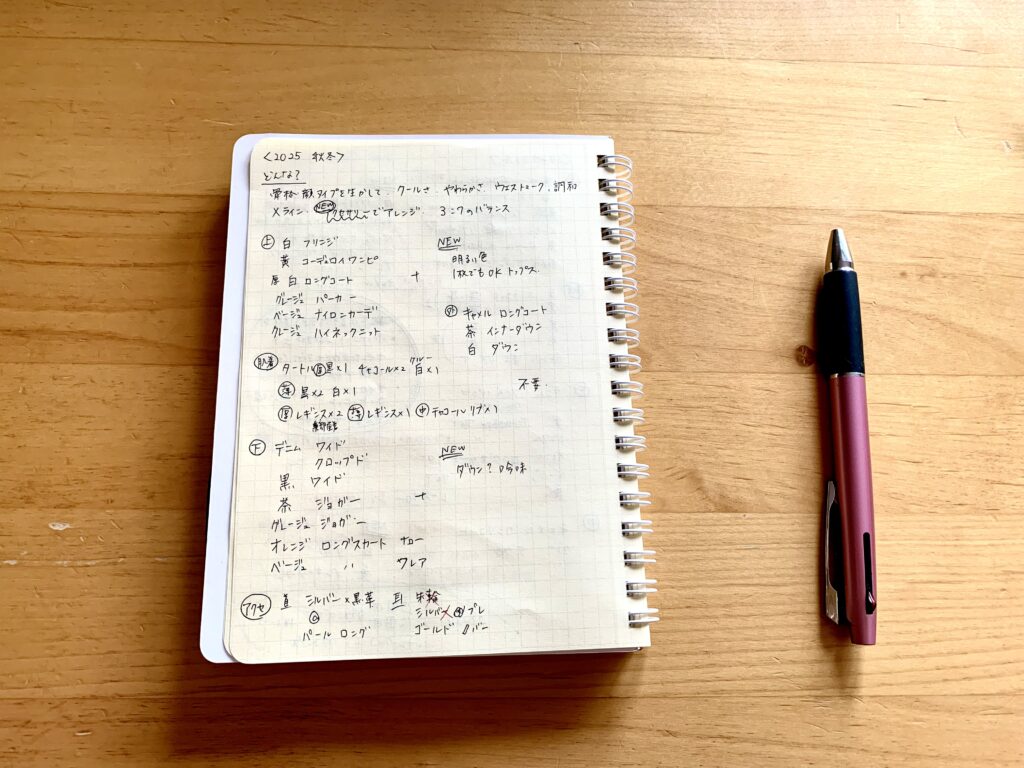 <2025 秋冬>
どんな?
骨格・顔タイプを生かして. クールさ. やわらかさ. ウエストマーク. 調和
Xライン. NEW でアレンジ. 3:7のバランス
上 白 フリンジ
黄 コーデュロイワンピ
厚白 ロングコート
グレージュ パーカー
ベージュ ナイロンカーデ
グレージュ ハイネックニット
+
NEW
明るい色
1枚でもOK トップス.
外 キャメル ロングコート
茶 インナーダウン
白 ダウン
肌着 タートル 黒×1 チャコール×2 白×1
クルー
薄 黒×2 白×1
不要.
厚 レギンス×2 薄 レギンス×1 中 チャコール リブ×1
下 デニム ワイド
クロップド
黒 ワイド
茶 ジョガー
グレージュ ジョガー
オレンジ ロングスカート ナロー
ベージュ 〃 フレア
+
NEW
ダウン? 吟味
アクセ 首 シルバー×黒革
パール ロング
耳
シルバー プレ
ゴールド バー